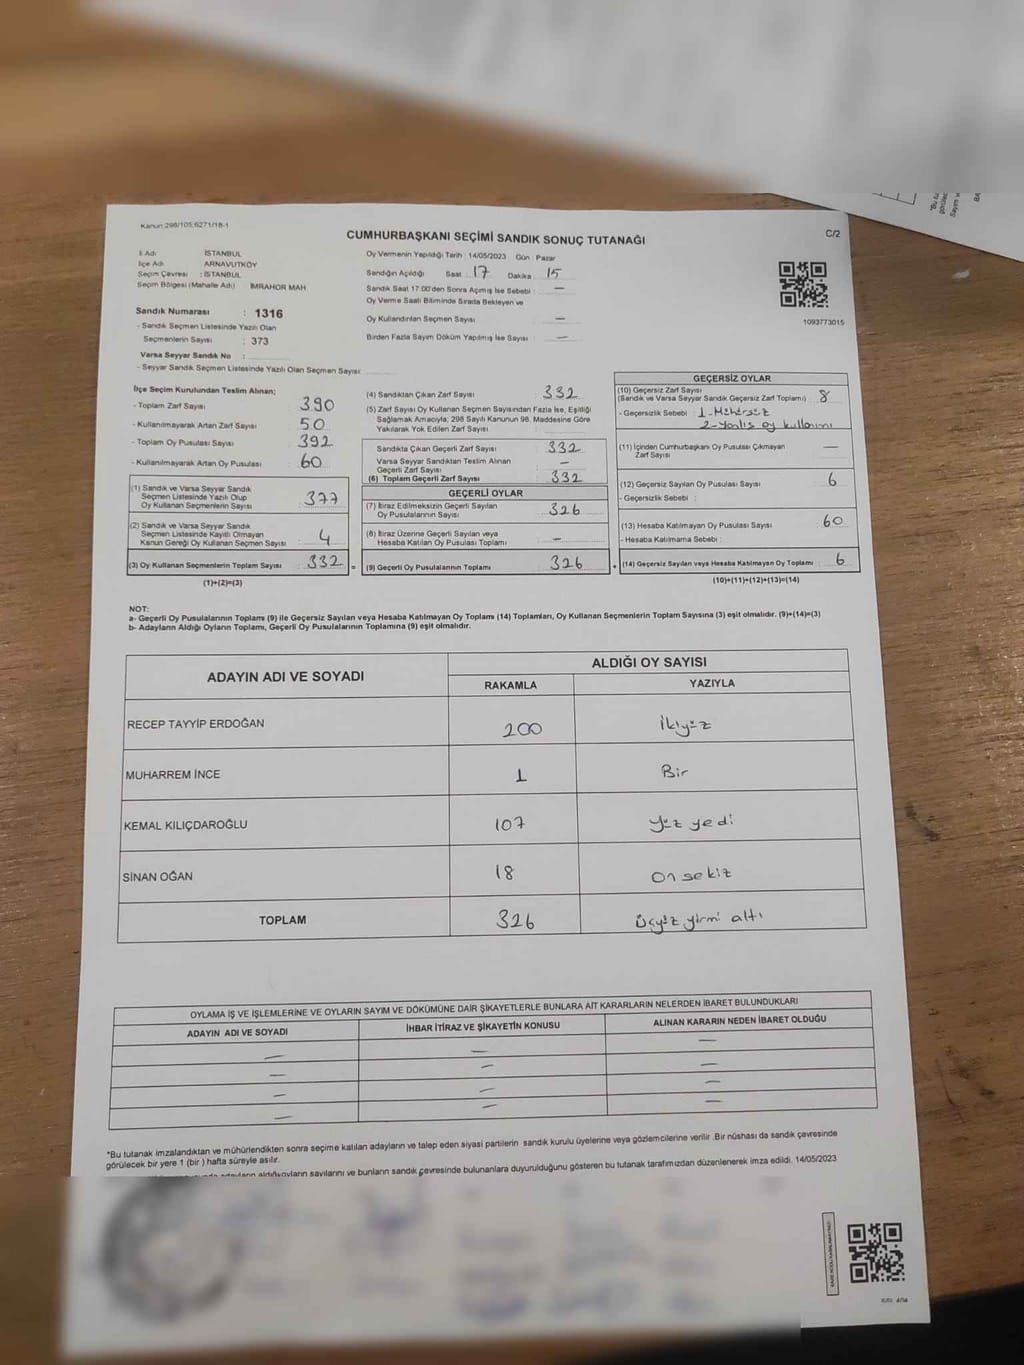 Kanun:298/105;6271/18-1
CUMHURBAŞKANI SEÇİMİ SANDIK SONUÇ TUTANAĞI
C/2
İl Adı İSTANBUL
İlçe Adı ARNAVUTKÖY
Seçim Çevresi : İSTANBUL
Seçim Bölgesi (Mahalle Adı) İMRAHOR MAH
Oy Vermenin Yapıldığı Tarih : 14/05/2023 Gün : Pazar
Sandığın Açıldığı Saat 17 Dakika 15
Sandık Saat 17.00'den Sonra Açımış İse Sebebi : —
Oy Verme Saati Bitiminde Sırada Bekleyen ve
Oy Kullandırılan Seçmen Sayısı —
Birden Fazla Sayım Döküm Yapılmış İse Sayısı : —
1093773015
Sandık Numarası : 1316
- Sandık Seçmen Listesinde Yazılı Olan
Seçmenlerin Sayısı : 373
Varsa Seyyar Sandık No :
- Seyyar Sandık Seçmen Listesinde Yazılı Olan Seçmen Sayısı:
İlçe Seçim Kurulundan Teslim Alınan;
- Toplam Zarf Sayısı 390
- Kullanılmayarak Artan Zarf Sayısı : 50
- Toplam Oy Pusulası Sayısı : 392
- Kullanılmayarak Artan Oy Pusulası : 60
(1) Sandık ve Varsa Seyyar Sandık
Seçmen Listesinde Yazılı Olup
Oy Kullanan Seçmenlerin Sayısı : 377
(2) Sandık ve Varsa Seyyar Sandık
Seçmen Listesinde Kayıtlı Olmayan
Kanun Gereği Oy Kullanan Seçmen Sayısı : 4
(3) Oy Kullanan Seçmenlerin Toplam Sayısı : 332 =
(1)+(2)=(3)
(4) Sandıktan Çıkan Zarf Sayısı : 332
(5) Zarf Sayısı Oy Kullanan Seçmen Sayısından Fazla İse, Eşitliği
Sağlamak Amacıyla, 298 Sayılı Kanunun 98. Maddesine Göre
Yakılarak Yok Edilen Zarf Sayısı :
Sandıkta Çıkan Geçerli Zarf Sayısı : 332
Varsa Seyyar Sandıktan Teslim Alınan
Geçerli Zarf Sayısı —
(6) Toplam Geçerli Zarf Sayısı : 332
GEÇERLİ OYLAR
(7) İtiraz Edilmeksizin Geçerli Sayılan
Oy Pusulalarının Sayısı : 326
(8) İtiraz Üzerine Geçerli Sayılan veya
Hesaba Katılan Oy Pusulası Toplamı : —
(9) Geçerli Oy Pusulalarının Toplamı : 326 +
GEÇERSİZ OYLAR
(10) Geçersiz Zarf Sayısı
(Sandık ve Varsa Seyyar Sandık Geçersiz Zarf Toplamı) : 8
- Geçersizlik Sebebi : 1-Mühürsüz
2-Yanlış oy kullanımı
(11) İçinden Cumhurbaşkanı Oy Pusulası Çıkmayan
Zarf Sayısı —
(12) Geçersiz Sayılan Oy Pusulası Sayısı : 6
- Geçersizlik Sebebi :
(13) Hesaba Katılmayan Oy Pusulası Sayısı : 60
- Hesaba Katılmama Sebebi :
(14) Geçersiz Sayılan veya Hesaba Katılmayan Oy Toplamı : 6
(10)+(11)+(12)+(13)=(14)
NOT:
a- Geçerli Oy Pusulalarının Toplamı (9) ile Geçersiz Sayılan veya Hesaba Katılmayan Oy Toplamı (14) Toplamları, Oy Kullanan Seçmenlerin Toplam Sayısına (3) eşit olmalıdır. (9)+(14)=(3)
b- Adayların Aldığı Oyların Toplamı, Geçerli Oy Pusulalarının Toplamına (9) eşit olmalıdır.
ADAYIN ADI VE SOYADI ALDIĞI OY SAYISI
RAKAMLA YAZIYLA
RECEP TAYYİP ERDOĞAN 200 İkiyüz
MUHARREM İNCE 1 Bir
KEMAL KILIÇDAROĞLU 107 Yüz yedi
SİNAN OĞAN 18 On sekiz
TOPLAM 326 Üçyüz yirmi altı
OYLAMA İŞ VE İŞLEMLERİNE VE OYLARIN SAYIM VE DÖKÜMÜNE DAİR ŞİKAYETLERLE BUNLARA AİT KARARLARIN NELERDEN İBARET BULUNDUKLARI
ADAYIN ADI VE SOYADI İHBAR İTİRAZ VE ŞİKAYETİN KONUSU ALINAN KARARIN NEDEN İBARET OLDUĞU
— — —
— — —
— — —
— — —
*Bu tutanak imzalandıktan ve mühürlendikten sonra seçime katılan adayların ve talep eden siyasi partilerin sandık kurulu üyelerine veya gözlemcilerine verilir .Bir nüshası da sandık çevresinde
görülecek bir yere 1 (bir ) hafta süreyle asılır.
sayılarını ve bunların sandık çevresinde bulunanlara duyurulduğunu gösteren bu tutanak tarafımızdan düzenlenerek imza edildi. 14/05/2023